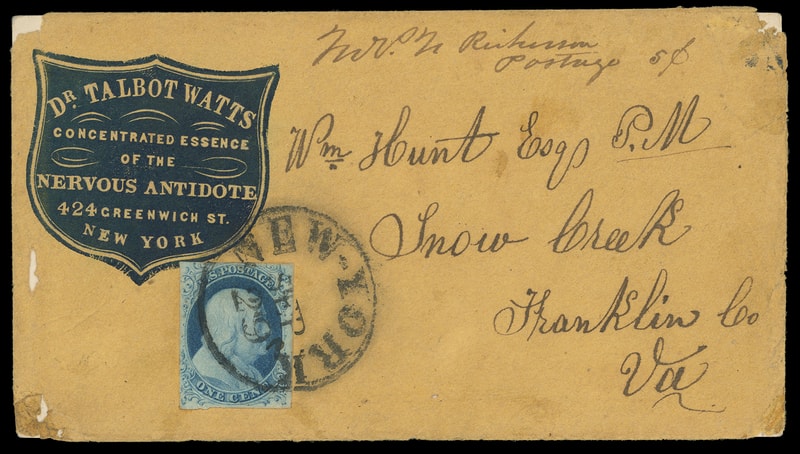 Postage 5¢
DR. TALBOT WATTS
CONCENTRATED ESSENCE
OF THE
NERVOUS ANTIDOTE
424 GREENWICH ST.
NEW YORK
Wm Hunt Esq P.M
Snow Creek
Franklin Co
Va
NEW-YORK
25
U.S. POSTAGE
ONE CENT